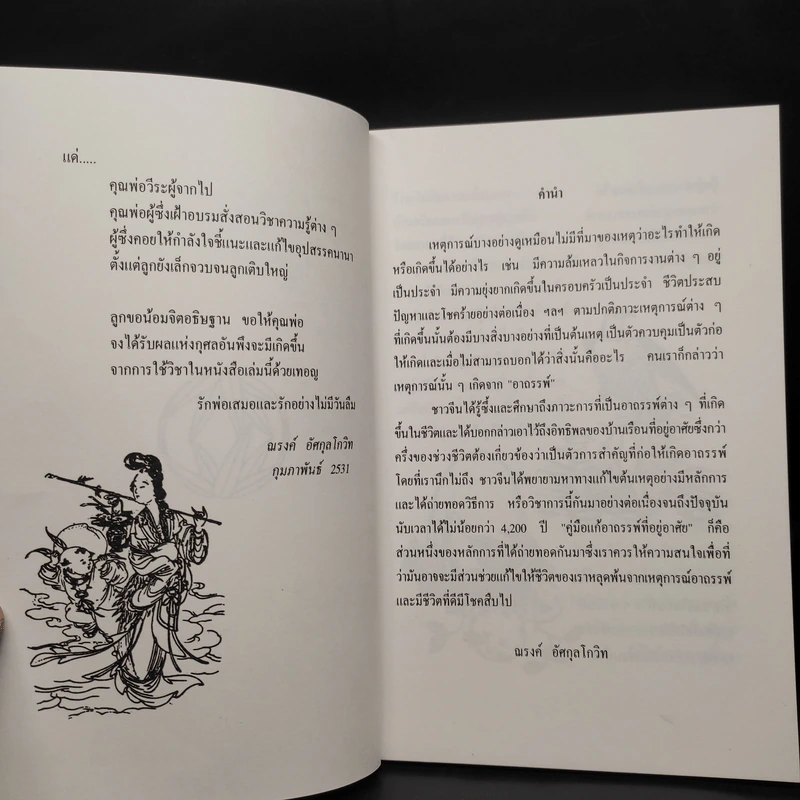 แด่.....
คุณพ่อวีระผู้จากไป
คุณพ่อผู้ซึ่งเฝ้าอบรมสั่งสอนวิชาความรู้ต่าง ๆ
ผู้ซึ่งคอยให้กำลังใจชี้แนะและแก้ไขอุปสรรคนานา
ตั้งแต่ลูกยังเล็กจวบจนลูกเติบใหญ่
ลูกขอน้อมจิตอธิษฐาน ขอให้คุณพ่อ
จงได้รับผลแห่งกุศลอันพึงจะมีเกิดขึ้น
จากการใช้วิชาในหนังสือเล่มนี้ด้วยเทอญ
รักพ่อเสมอและรักอย่างไม่มีวันลืม
ณรงค์ อัศกุลโกวิท
กุมภาพันธ์ 2531
คำนำ
เหตุการณ์บางอย่างดูเหมือนไม่มีที่มาของเหตุว่าอะไรทำให้เกิด
หรือเกิดขึ้นได้อย่างไร เช่น มีความล้มเหลวในกิจการงานต่าง ๆ อยู่
เป็นประจำ มีความยุ่งยากเกิดขึ้นในครอบครัวเป็นประจำ ชีวิตประสบ
ปัญหาและโชคร้ายอย่างต่อเนื่อง ฯลฯ ตามปกติภาวะเหตุการณ์ต่าง ๆ
ที่เกิดขึ้นนั้นต้องมีบางสิ่งบางอย่างที่เป็นต้นเหตุ เป็นตัวควบคุมเป็นตัวก่อ
ให้เกิดและเมื่อไม่สามารถบอกได้ว่าสิ่งนั้นคืออะไร คนเราก็กล่าวว่า
เหตุการณ์นั้น ๆ เกิดจาก "อาถรรพ์"
ชาวจีนได้รู้ซึ้งและศึกษาถึงภาวะการที่เป็นอาถรรพ์ต่าง ๆ ที่เกิด
ขึ้นในชีวิตและได้บอกกล่าวเอาไว้ถึงอิทธิพลของบ้านเรือนที่อยู่อาศัยซึ่งกว่า
ครึ่งของช่วงชีวิตต้องเกี่ยวข้องว่าเป็นตัวการสำคัญที่ก่อให้เกิดอาถรรพ์
โดยที่เรานึกไม่ถึง ชาวจีนได้พยายามหาทางแก้ไขต้นเหตุอย่างมีหลักการ
และได้ถ่ายทอดวิธีการ หรือวิชาการนี้กันมาอย่างต่อเนื่องจนถึงปัจจุบัน
นับเวลาได้ไม่น้อยกว่า 4,200 ปี "คู่มือแก้อาถรรพ์ที่อยู่อาศัย" ก็คือ
ส่วนหนึ่งของหลักการที่ได้ถ่ายทอดกันมาซึ่งเราควรให้ความสนใจเพื่อที่
ว่ามันอาจจะมีส่วนช่วยแก้ไขให้ชีวิตของเราหลุดพ้นจากเหตุการณ์อาถรรพ์
และมีชีวิตที่ดีมีโชคสืบไป
ณรงค์ อัศกุลโกวิท